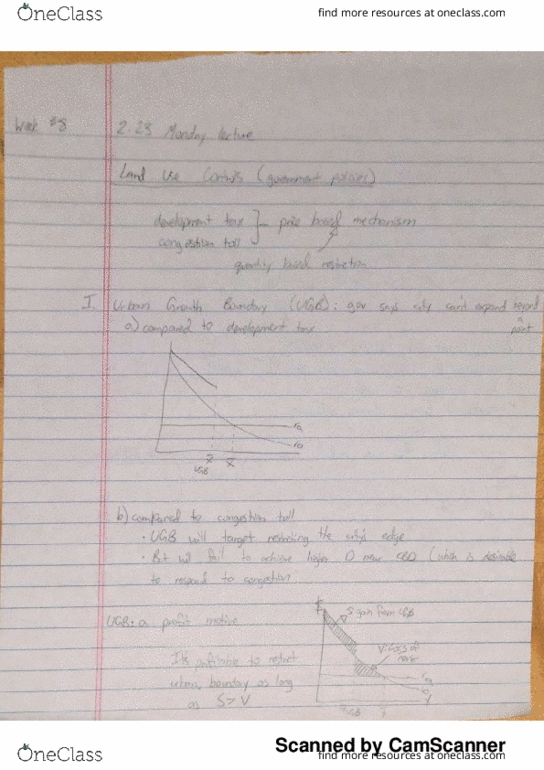 OneClass
find more resources at oneclass.com
Week #8
2.23 Monday lecture
Land Use Controls (government policies)
development tax
congestion toll
price based mechanism
quantity based restriction
I. Urban Growth Boundary (UGB): gov says city can't expand beyond
a point
a) compared to development tax
ra
UGB
x̄
b) compared to congestion toll
• UGB will target restricting the city's edge
• But will fail to achieve higher D near CBD (which is desirable
to respond to congestion
UGB: a profit motive
S gain from UGB
V: loss of
It's profitable to restrict
urban boundary as long
as S>V
ra
UGB
Scanned by CamScanner
OneClass
find more resources at oneclass.com